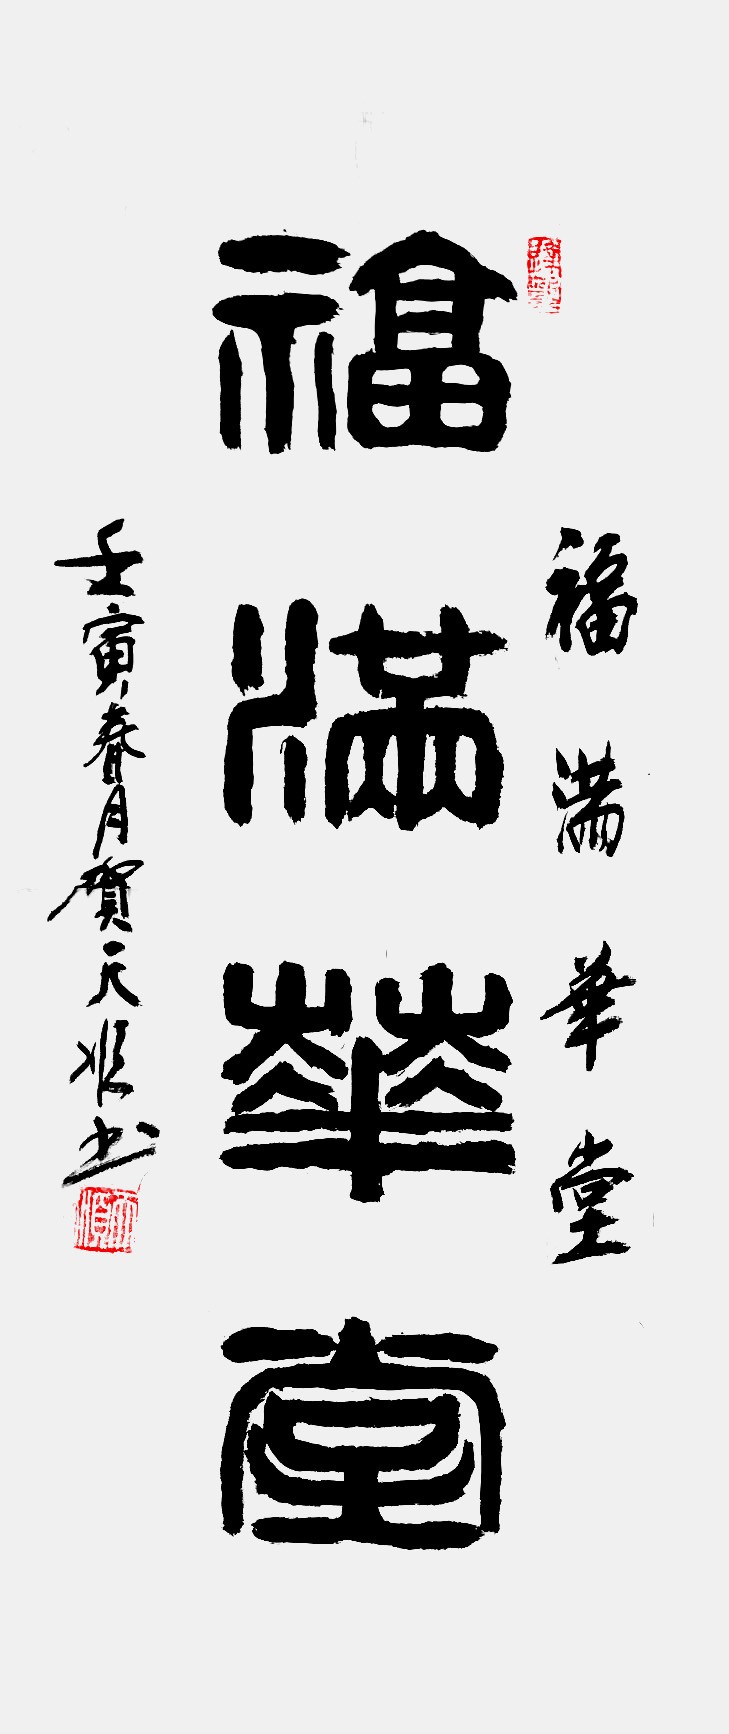 福滿華堂
福滿華堂
壬寅春月賀天順书